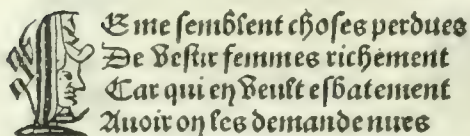 CE me ſemblent choſes perdues
De Veſtir femmes richement
Car qui en Veult eſbatement
Auoir on les demande nues